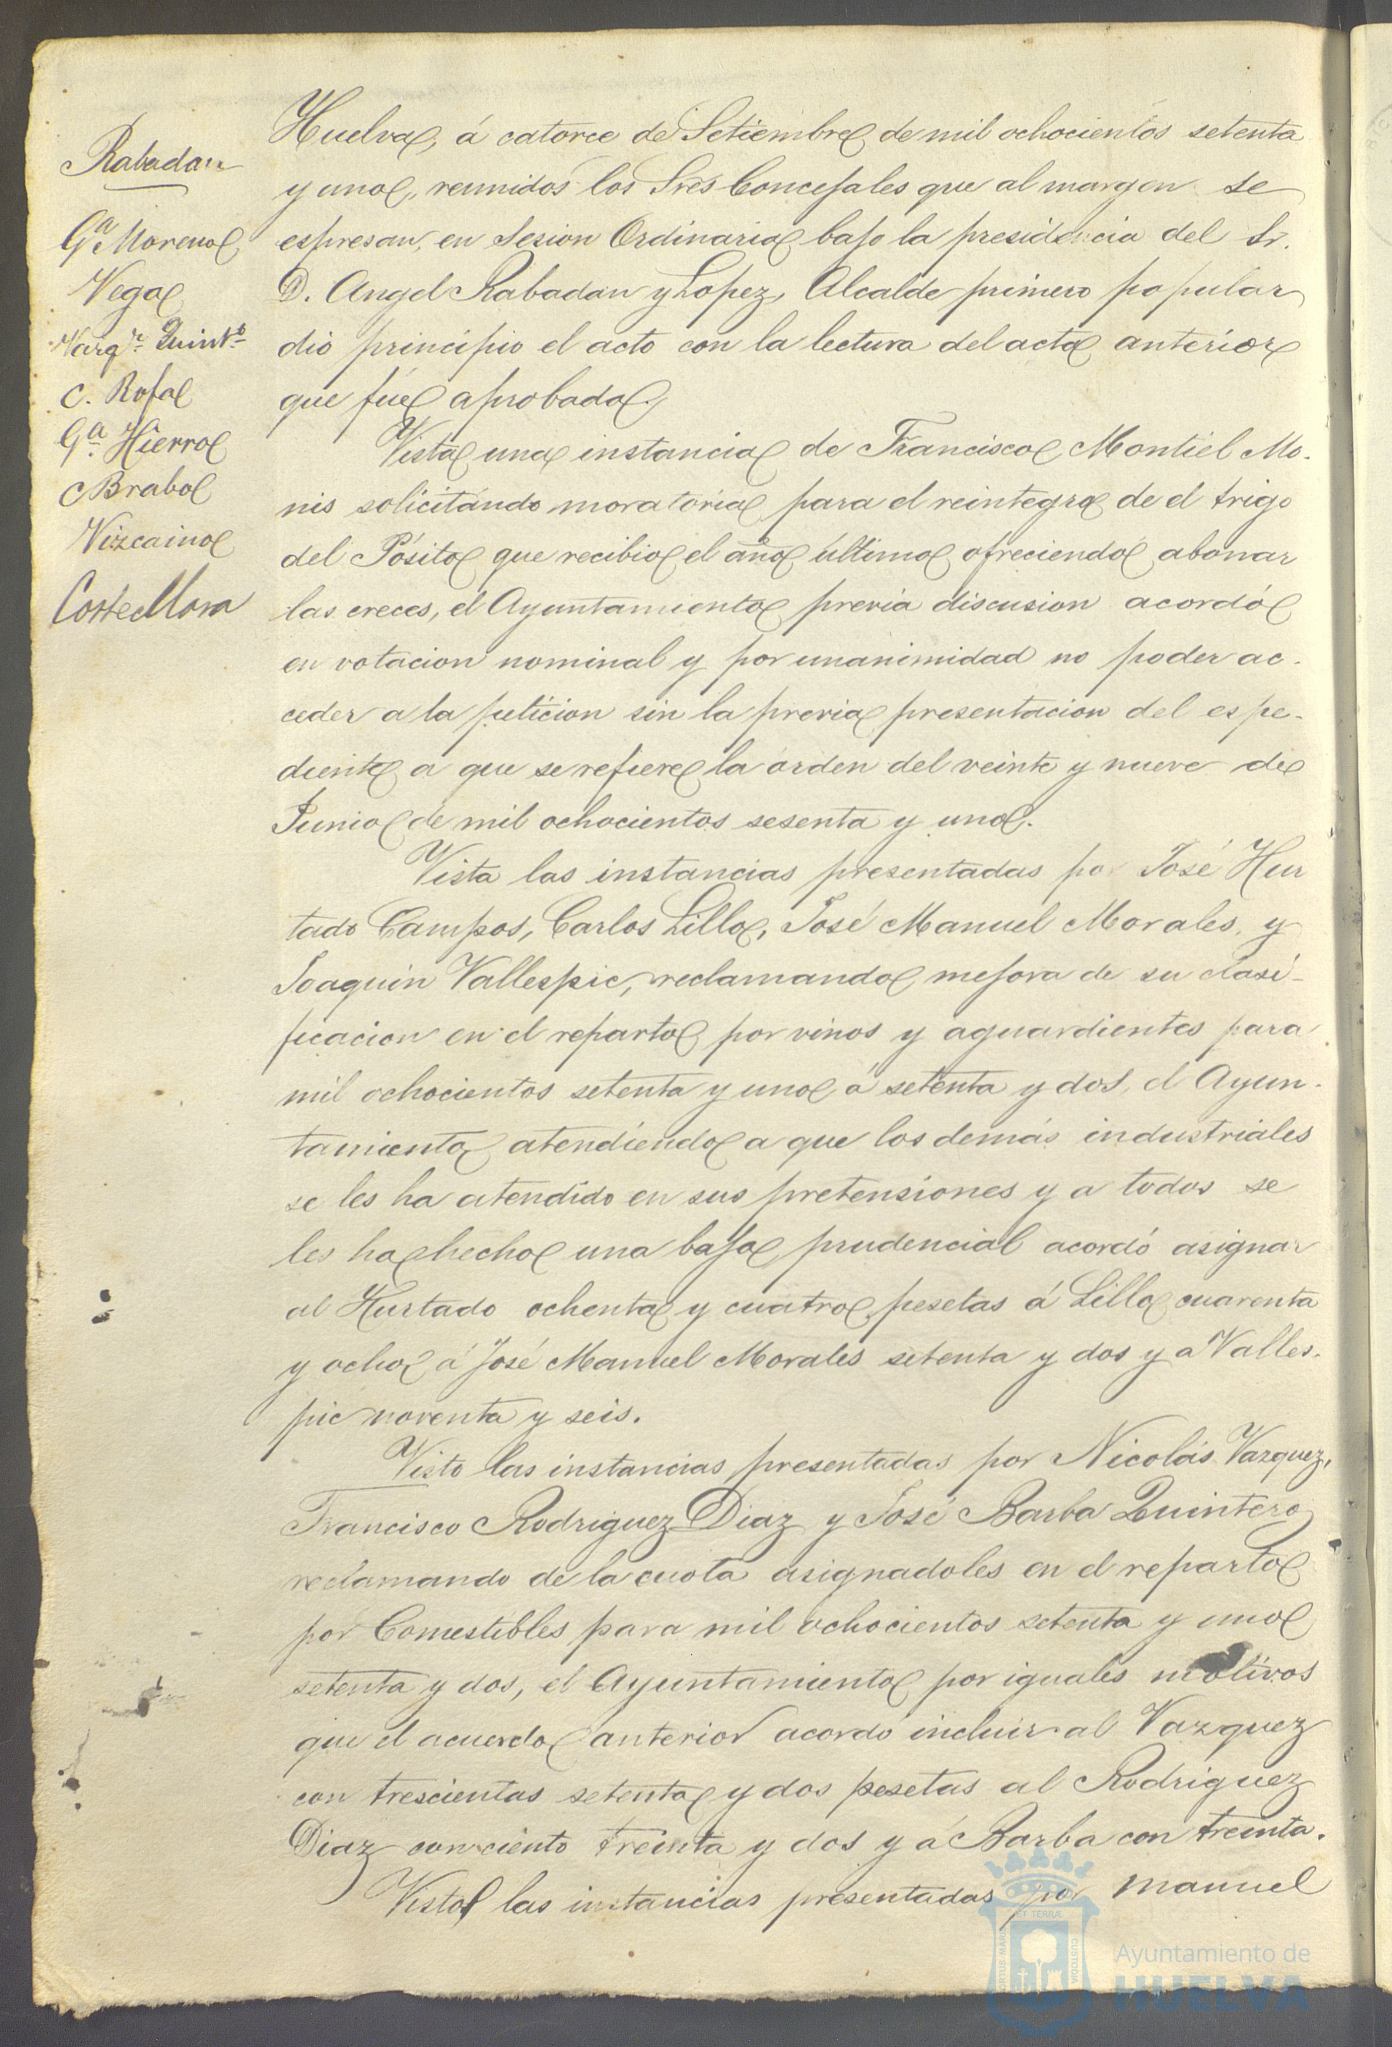 Rabadan
Gª Moreno
Vega
Varqr. Quintº
C. Rofa
Gª Hierro
C Brabo
Vizcaino
Huelva, á catorce de Setiembre de mil ochocientos setenta
y uno, reunidos los Sres Concejales que al margen se
espresan, en Sesion Ordinaria bajo la presidencia del Sr.
D. Angel Rabadan y Lopez, Alcalde primero popular
dió principio el acto con la lectura del acta anterior
que fué aprobada.
Vista una instancia de Francisco Montiel Mo-
nis solicitándo moratoria para el reintegro de el trigo
del Pósito que recibio el año último ofreciendo abonar
las creces, el Ayuntamiento previa discusion acordó
en votacion nominal y por unanimidad no poder ac-
ceder a la peticion sin la previa presentacion del espe-
diente a que se refiere la orden del veinte y nueve de
Junio de mil ochocientos sesenta y uno.
Vista las instancias presentadas por José Hur
tado Campos, Carlos Lillo, José Manuel Morales, y
Joaquin Vallespic, reclamando mejora de su clasi-
ficacion en el reparto por vinos y aguardientes para
mil ochocientos setenta y uno á setenta y dos, el Ayun-
tamiento atendiendo a que los demás industriales
se les ha atendido en sus pretensiones y a todos se
les ha hecho una baja prudencial acordó asignar
al Hurtado ochenta y cuatro pesetas á Lillo cuarenta
y ocho á José Manuel Morales setenta y dos y a Valles-
pic noventa y seis.
Visto las instancias presentadas por Nicolás Vazquez,
Francisco Rodriguez Diaz y José Barba Quintero
reclamando de la cuota asignadoles en el reparto
por Comestibles para mil ochocientos setenta y uno
setenta y dos, el Ayuntamiento por iguales motivos
que el acuerdo anterior acordó incluir al Vazquez
con trescientas setenta y dos pesetas al Rodriguez
Diaz con ciento treinta y dos y á Barba con treinta.
Visto las instancias presentadas por Manuel
Ayuntamiento de
HUELVA